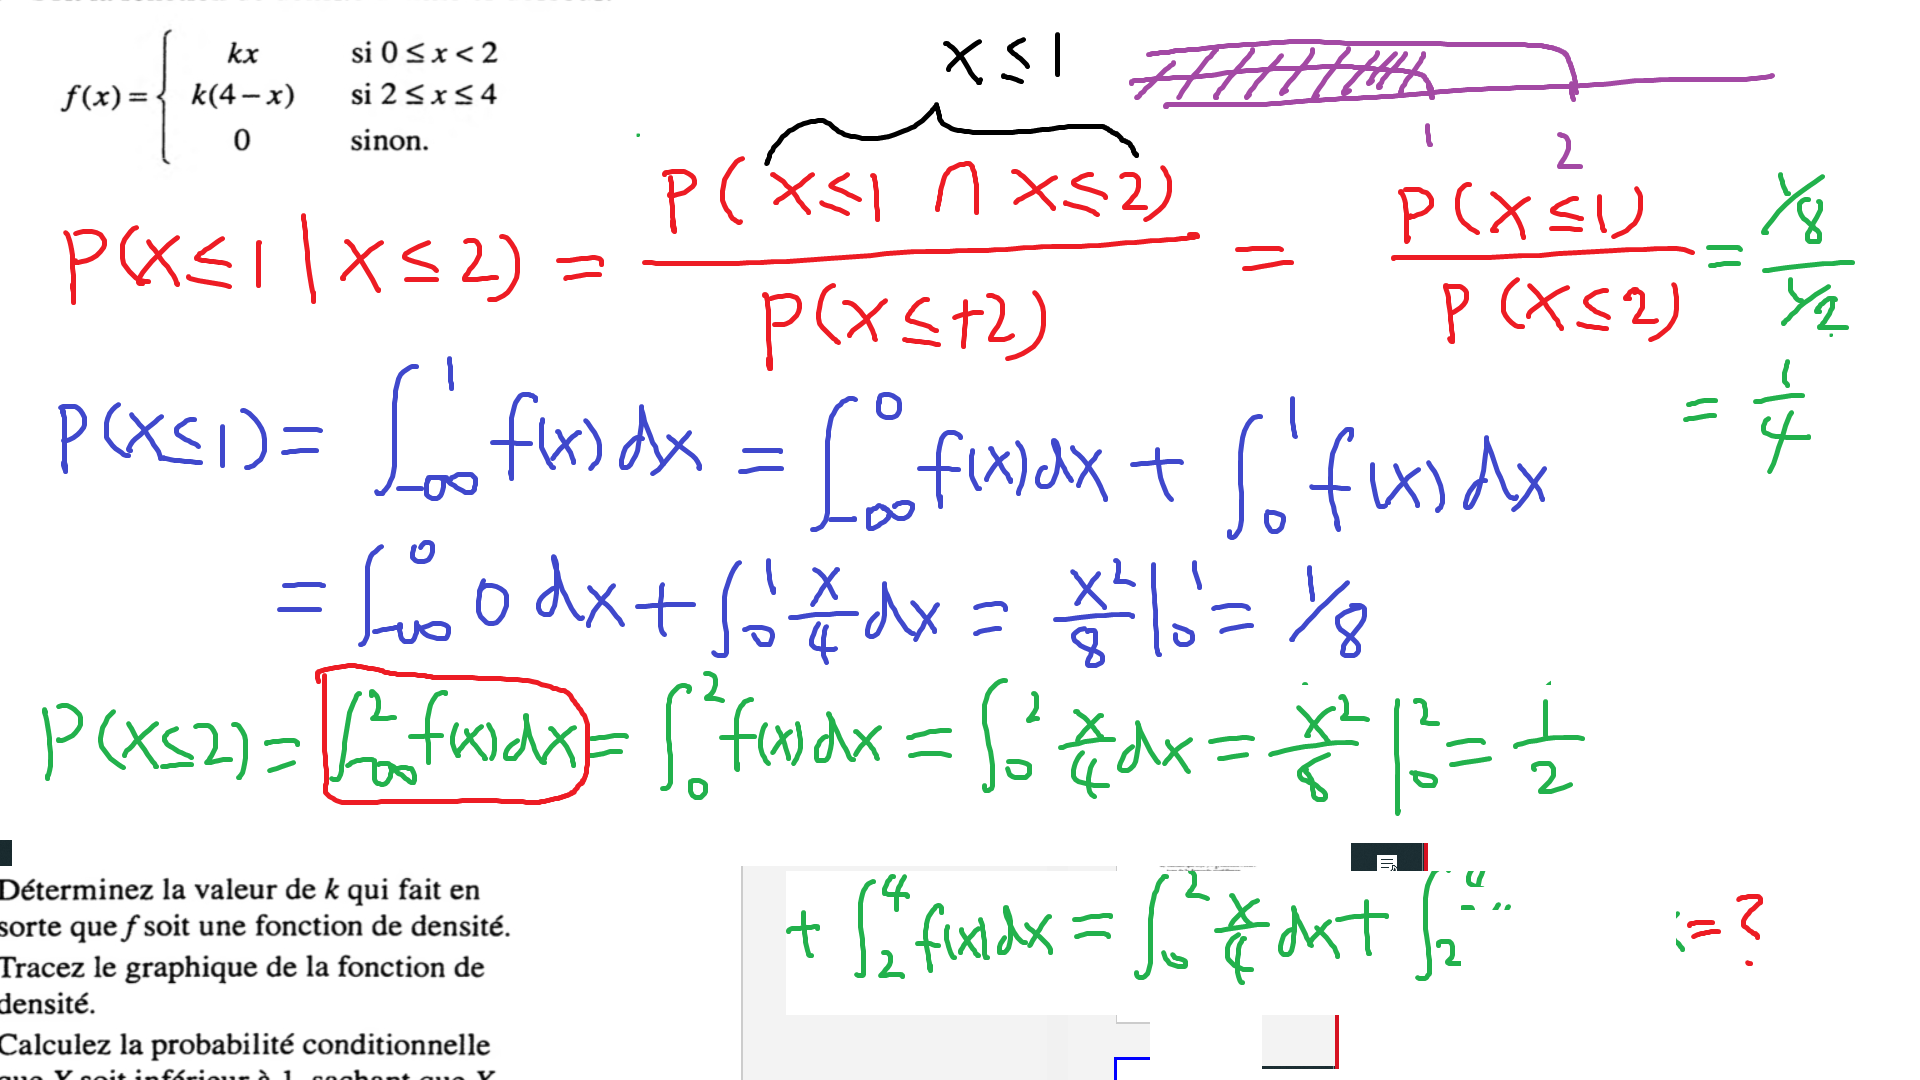 f(x) = { kx si 0 ≤ x < 2
k(4 − x) si 2 ≤ x ≤ 4
0 sinon.
x ≤ 1
1 2
P(x≤1 | x≤2) = P(x≤1 ∩ x≤2) / P(x≤+2) = P(x≤1) / P(x≤2) = 1/8 / 1/2
= 1/4
P(x≤1) = ∫_{-∞}^{1} f(x)dx = ∫_{-∞}^{0} f(x)dx + ∫_{0}^{1} f(x)dx
= ∫_{-∞}^{0} 0 dx + ∫_{0}^{1} x/4 dx = x²/8 |_{0}^{1} = 1/8
P(x≤2) = ∫_{-∞}^{2} f(x)dx = ∫_{0}^{2} f(x)dx = ∫_{0}^{2} x/4 dx = x²/8 |_{0}^{2} = 1/2
Déterminez la valeur de k qui fait en
sorte que f soit une fonction de densité.
Tracez le graphique de la fonction de
densité.
Calculez la probabilité conditionnelle
que X soit inférieur à 1, sachant que X
+ ∫_{2}^{4} f(x)dx = ∫_{0}^{2} x/4 dx + ∫_{2}^{4} = ?